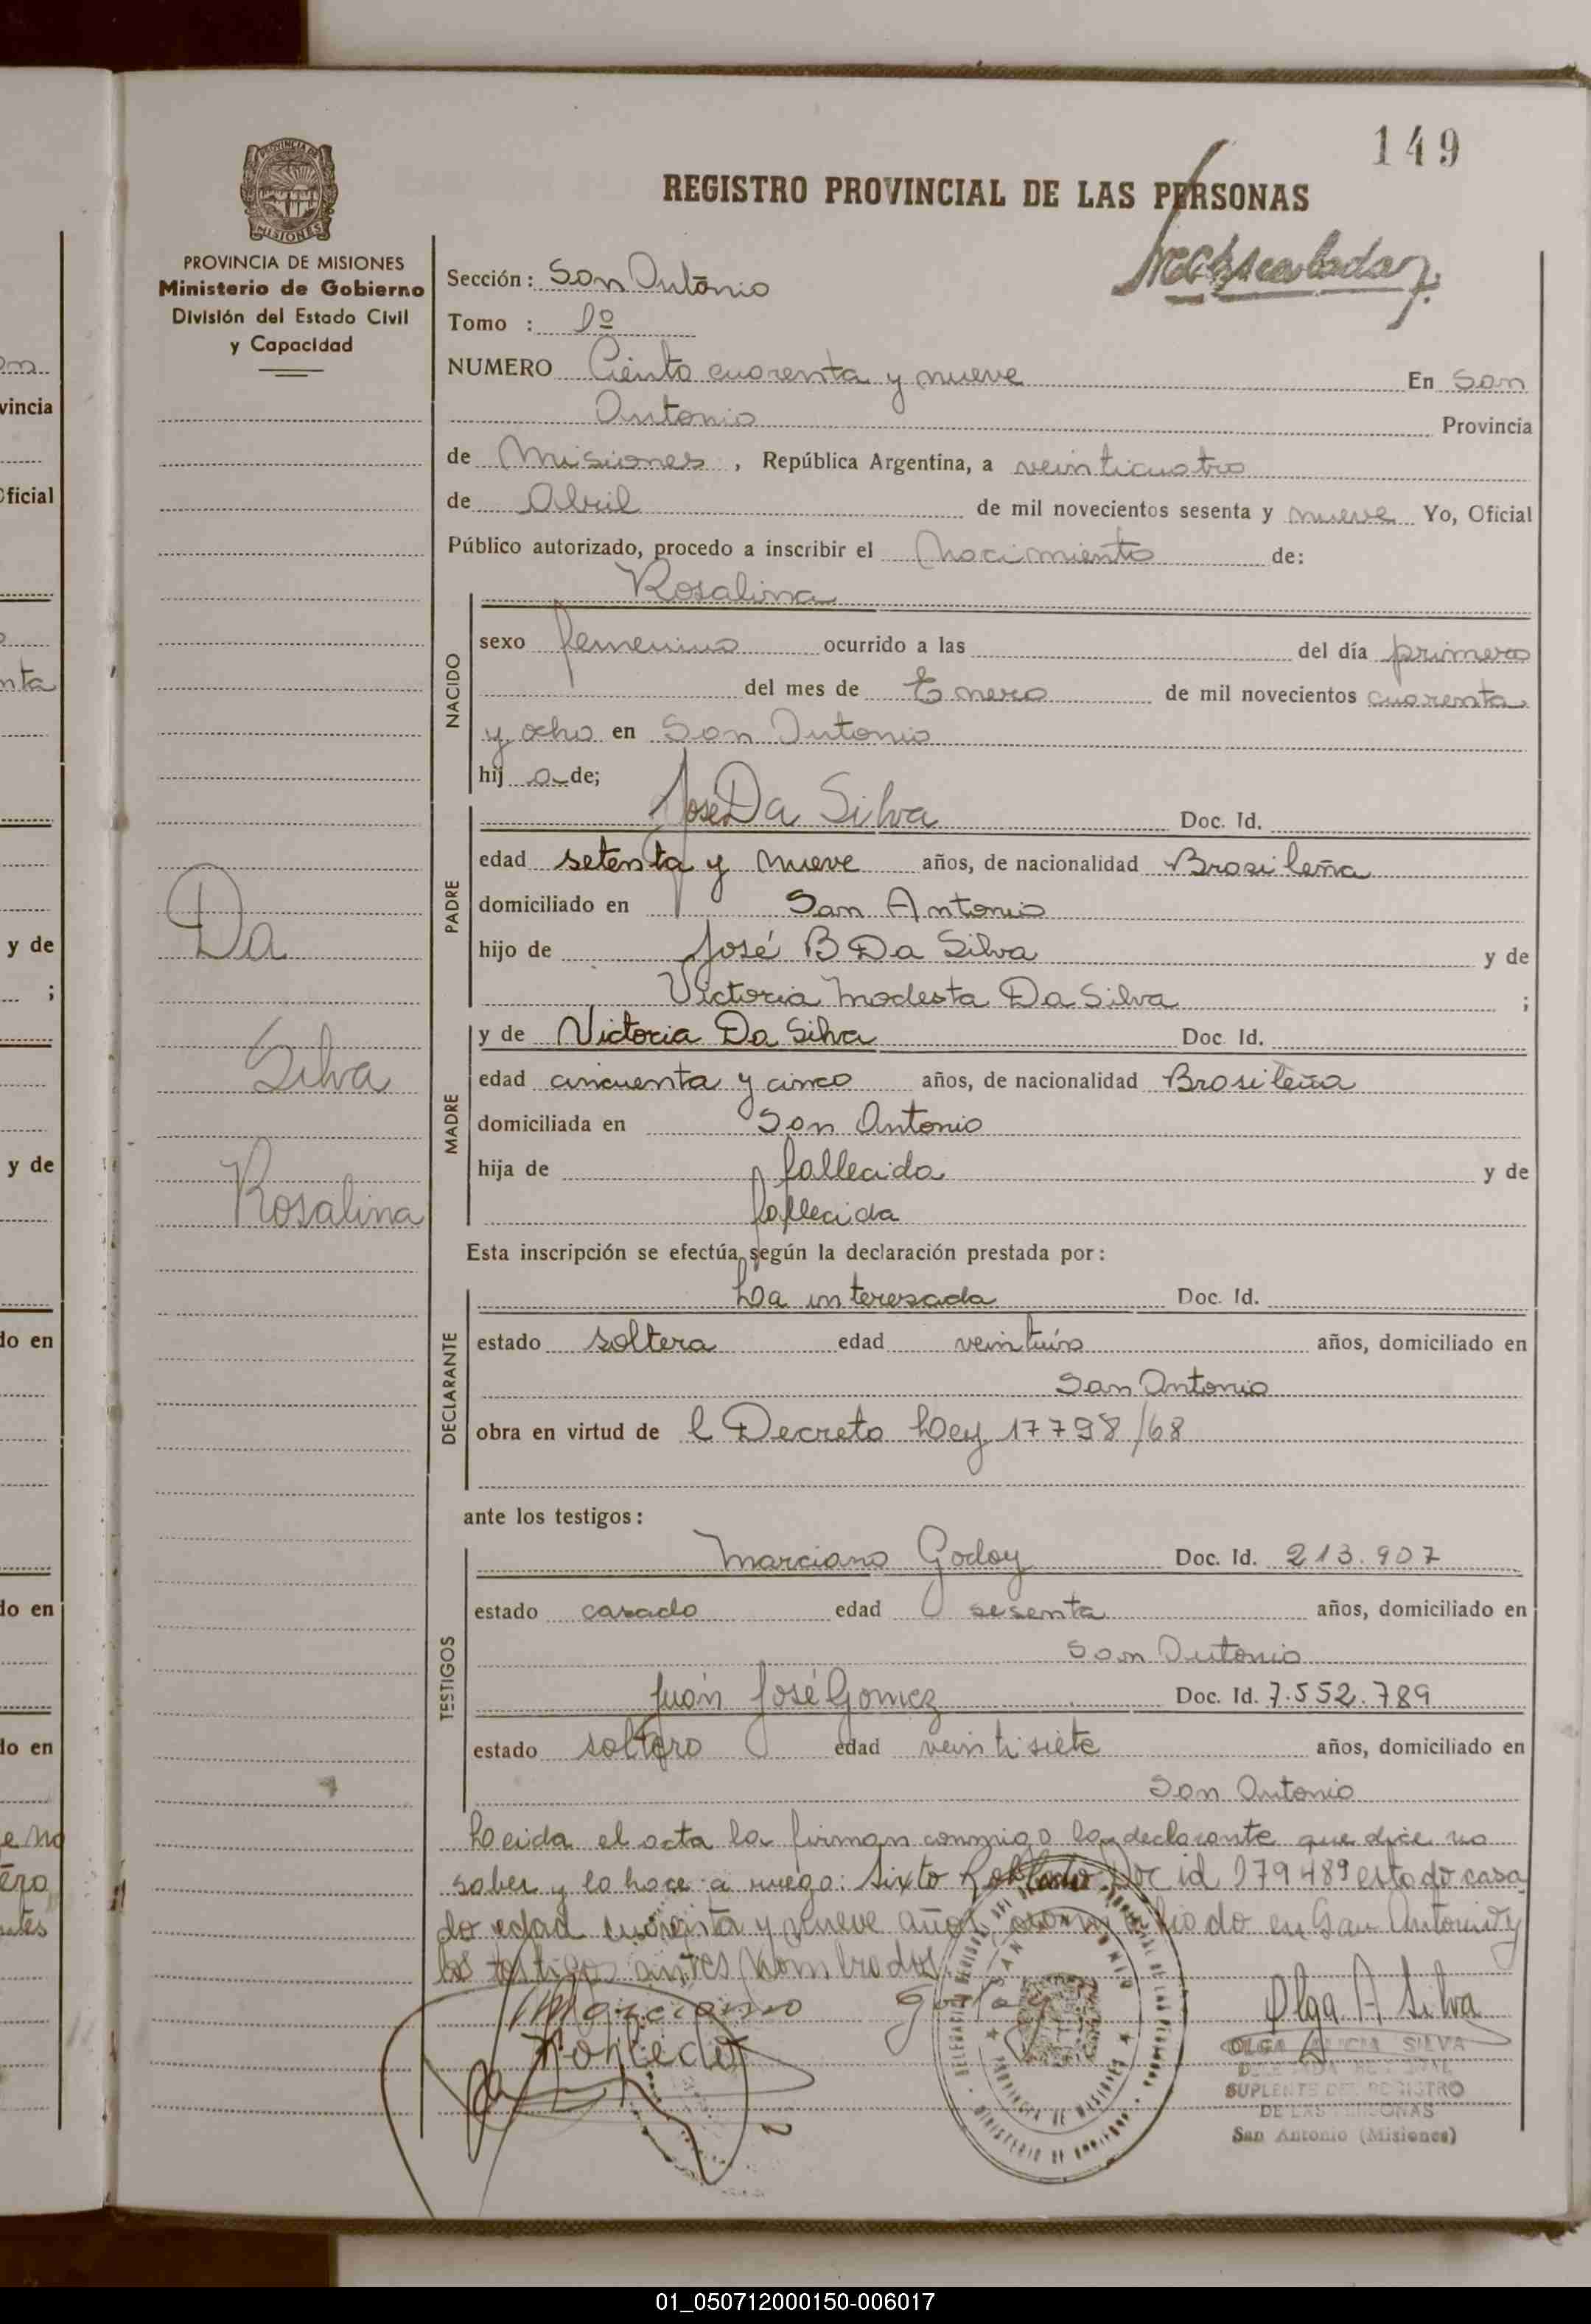 149
REGISTRO PROVINCIAL DE LAS PERSONAS
PROVINCIA DE
MISIONES
PROVINCIA DE MISIONES
Ministerio de Gobierno
División del Estado Civil
y Capacidad
Sección: San Antonio
Tomo : 1º
NUMERO Ciento cuarenta y nueve En San
Antonio Provincia
de Misiones, República Argentina, a veinticuatro
de Abril de mil novecientos sesenta y nueve Yo, Oficial
Público autorizado, procedo a inscribir el Nacimiento de:
Rosalina
NACIDO
sexo femenino ocurrido a las del día primero
del mes de Enero de mil novecientos cuarenta
y ocho en San Antonio
hij a de;
José Da Silva Doc. Id.
PADRE
edad setenta y nueve años, de nacionalidad Brasileña
domiciliado en San Antonio
hijo de José B Da Silva y de
Victoria Modesta Da Silva ;
y de Victoria Da Silva Doc Id.
MADRE
edad cincuenta y cinco años, de nacionalidad Brasileña
domiciliada en San Antonio
hija de fallecido y de
fallecida
Da
Silva
Rosalina
Esta inscripción se efectúa según la declaración prestada por:
La interesada Doc. Id.
DECLARANTE
estado soltera edad veintiún años, domiciliado en
San Antonio
obra en virtud de l Decreto Ley 17798/68
ante los testigos:
Marciano Godoy Doc. Id. 213.907
TESTIGOS
estado casado edad sesenta años, domiciliado en
San Antonio
Juan José Gomez Doc. Id. 7.552.789
estado soltero edad veintisiete años, domiciliado en
San Antonio
Leida el acta la firman conmigo la declarante que dice no
saber y lo hace a ruego: Sixto Doc id 179489 estado casa
do edad cuarenta y nueve años domiciliado en San Antonio y
los testigos antes nombrados
Marciano Godoy
Olga A Silva
OLGA ALICIA SILVA
SUPLENTE DEL REGISTRO
DE LAS PERSONAS
San Antonio (Misiones)
PROVINCIA DE MISIONES
MINISTERIO DE GOBIERNO
vincia
Oficial
y de
;
y de
do en
do en
do en
01_050712000150-006017